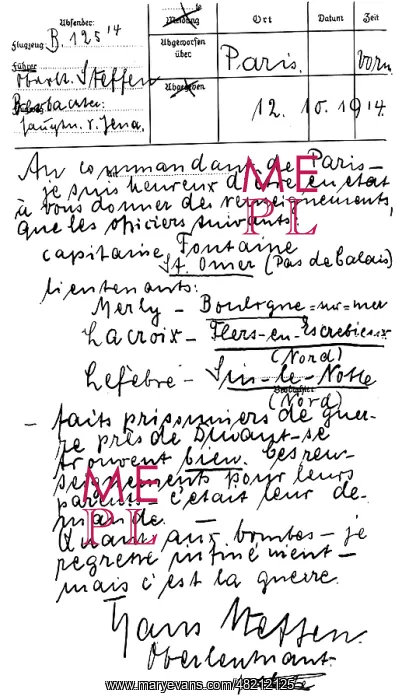 Absender:
Flugzeug: B. 125'14
Führer
Oberlt. Steffen
Beobachter:
Hauptm. v. Jena.
Meldung Ort Datum Zeit
Abgeworfen über Paris. vorm.
Abgegeben 12. 10. 1914.
Au commandant de Paris—
je suis heureux d'être en état
à vous donner des renseignements,
que les officiers suivants:
capitaine Fontaine
St. Omer (Pas de Calais)
lieutenants:
Merly — Boulogne-sur-mer
Lacroix — Flers-en-Escrebieux
(Nord)
Lefèbre — Sin-le-Noble
(Nord)
— faits prisonniers de guer-
re près de Dinant—se
trouvent bien. Ces ren-
seignements pour leurs
parents — c'était leur de-
mande. —
Quant aux bombes — je
regrette infiniment —
mais c'est la guerre.
Hans Steffen.
Oberleutnant.
ME
PL
ME
PL
www.maryevans.com/48212125